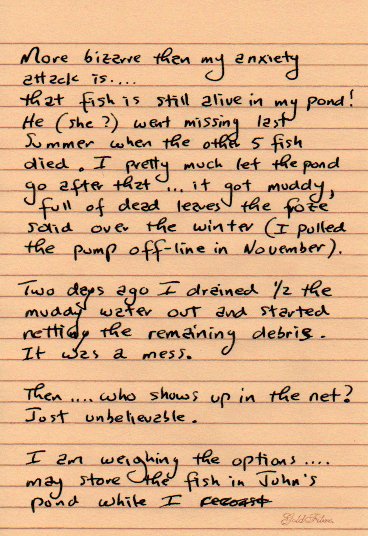 More bizarre then my anxiety
attack is....
that fish is still alive in my pond!
He (she?) went missing last
Summer when the other 5 fish
died. I pretty much let the pond
go after that ... it got muddy,
full of dead leaves the froze
solid over the winter (I pulled
the pump off-line in November).
Two days ago I drained 1/2 the
muddy water out and started
netting the remaining debris.
It was a mess.
Then .... who shows up in the net?
Just unbelievable.
I am weighing the options ....
may store the fish in John's
pond while I
Gold Fibre